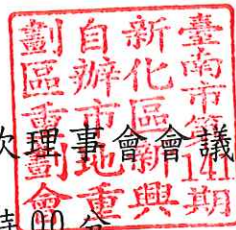 臺南市第141期
新化區新興
自辦市地重
劃區重劃會
次理事會會議
時00分